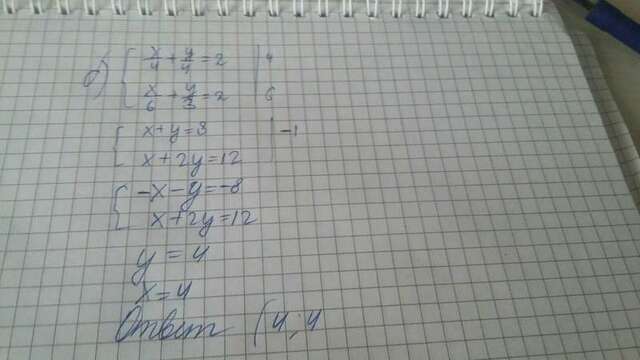 б) { x/4 + y/4 = 2 | 4
x/6 + y/3 = 2 | 6
{ x + y = 8 | -1
x + 2y = 12
{ -x - y = -8
x + 2y = 12
y = 4
x = 4
Ответ (4; 4